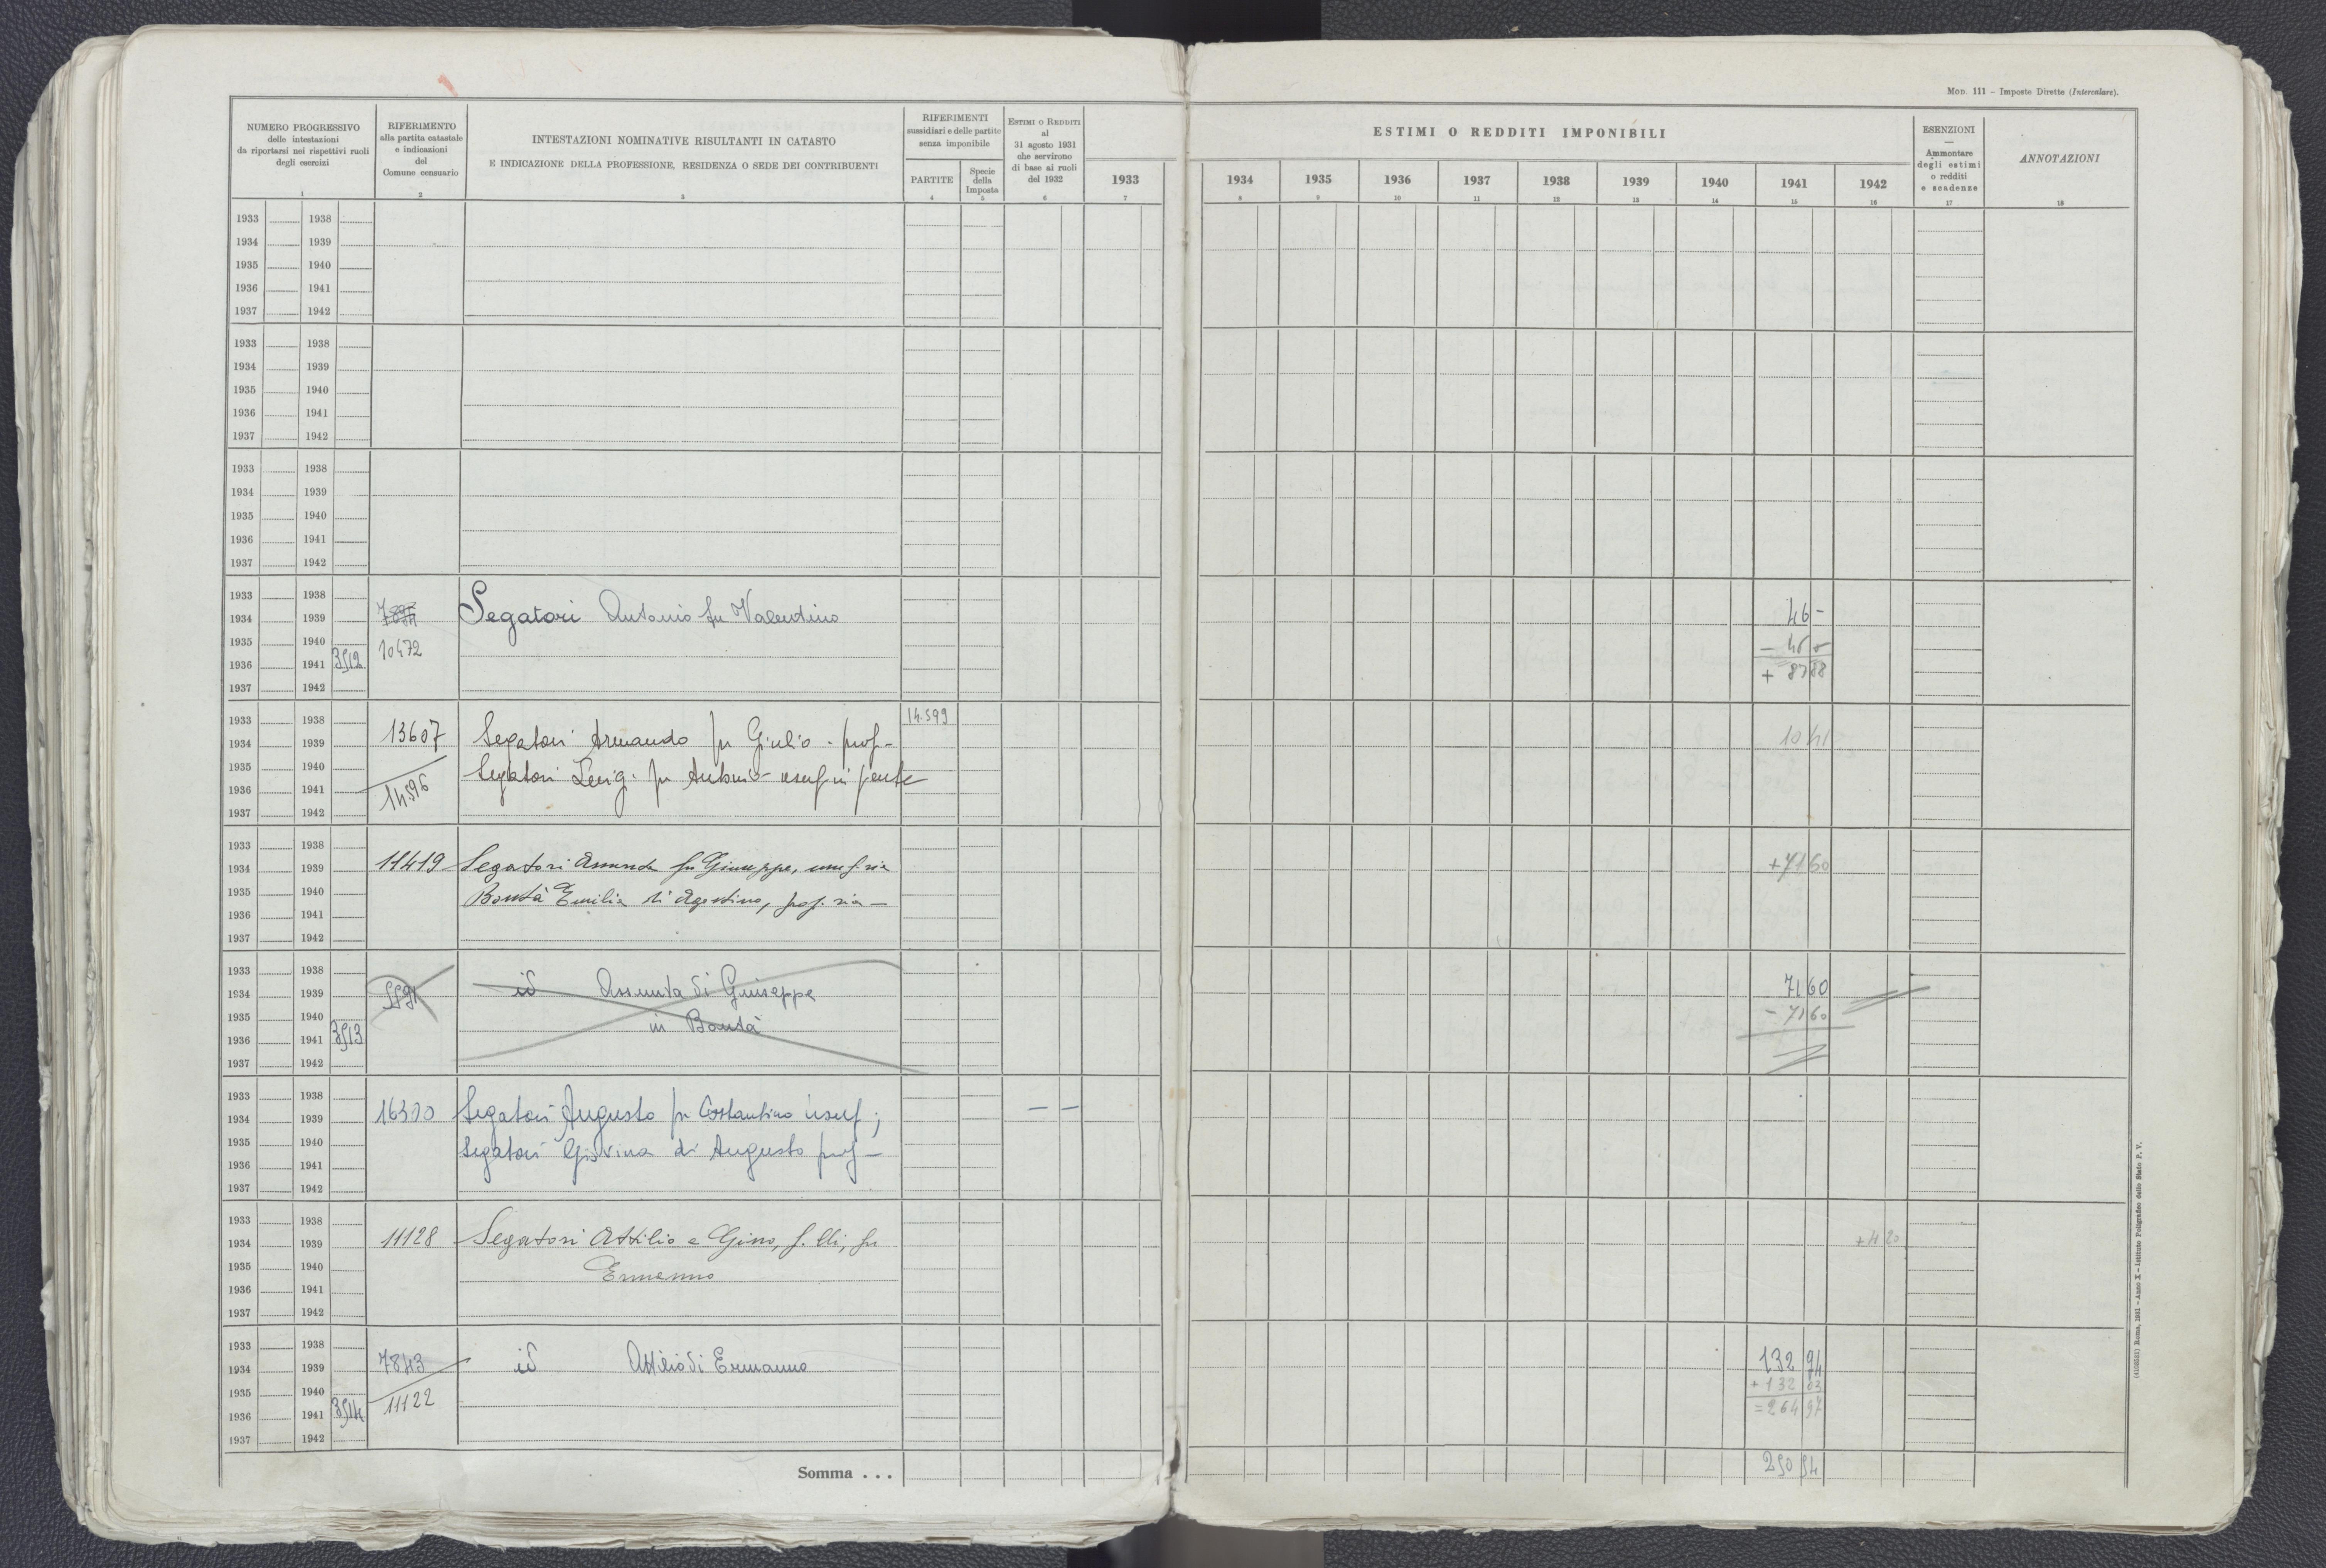 MOD. 111 – Imposte Dirette (Intercalare).
NUMERO PROGRESSIVO
delle intestazioni
da riportarsi nei rispettivi ruoli
degli esercizi
1
RIFERIMENTO
alla partita catastale
e indicazioni
del
Comune censuario
2
INTESTAZIONI NOMINATIVE RISULTANTI IN CATASTO
E INDICAZIONE DELLA PROFESSIONE, RESIDENZA O SEDE DEI CONTRIBUENTI
3
RIFERIMENTI
sussidiari e delle partite
senza imponibile
PARTITE
4
Specie
della
Imposta
5
ESTIMI O REDDITI
al
31 agosto 1931
che servirono
di base ai ruoli
del 1932
6
ESTIMI O REDDITI IMPONIBILI
1933 1934 1935 1936 1937 1938 1939 1940 1941 1942
7 8 9 10 11 12 13 14 15 16
ESENZIONI
—
Ammontare
degli estimi
o redditi
e scadenze
17
ANNOTAZIONI
18
1933 1938
1934 1939
1935 1940
1936 1941
1937 1942
1933 1938
1934 1939
1935 1940
1936 1941
1937 1942
1933 1938
1934 1939
1935 1940
1936 1941
1937 1942
1933 1938
1934 1939 Segatori Antonio fu Valentino 46 –
1935 1940 10472
1936 1941 3512 + 87 88
1937 1942
1933 1938 14.599
1934 1939 13607 Segatori Armando fu Giulio - prop - 10 41
1935 1940 Segatori Luig. fu Antonio - usuf in parte
1936 1941 14596
1937 1942
1933 1938
1934 1939 11419 Segatori Assunta fu Giuseppe, usuf. ria + 71 60
1935 1940 Bontà Emilia di Agostino, prop. ria —
1936 1941
1937 1942
1933 1938
1934 1939 5591 id Assunta di Giuseppe 71 60
1935 1940 in Bontà - 71 60
1936 1941 3513
1937 1942
1933 1938
1934 1939 Segatori Augusto fu Costantino usuf; — —
1935 1940 Segatori Giovina di Augusto prop —
1936 1941
1937 1942
1933 1938
1934 1939 11128 Segatori Attilio e Gino, f.lli, fu + 4 20
1935 1940 Ermanno
1936 1941
1937 1942
1933 1938
1934 1939 7843 id Attilio di Ermanno 132 94
1935 1940 11122 + 132 03
1936 1941 3514 = 264 97
1937 1942
Somma . . . 250 54
(4103531) Roma, 1931 – Anno X – Istituto Poligrafico dello Stato P. V.